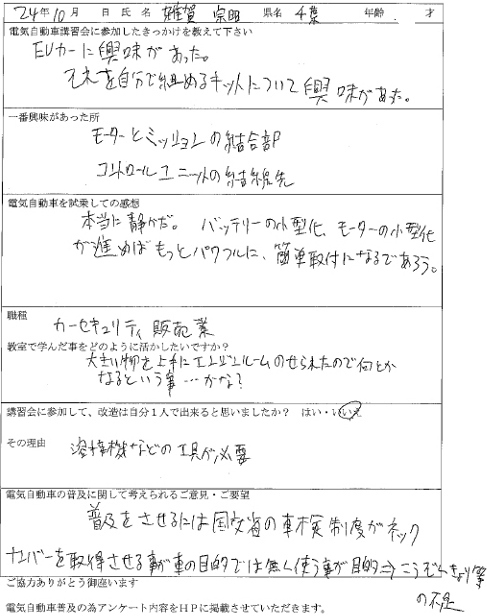 24年10月 日 氏名 雑賀 宗田 県名 千葉 年齢 . 才
電気自動車講習会に参加したきっかけを教えて下さい
EVカーに興味があった。
それを自分で組めるキットについて興味があった。
一番興味があった所
モーターとミッションの結合部P
コントロールユニットの結線先
電気自動車を試乗しての感想
本当に静かだ。 バッテリーの小型化、モーターの小型化
が進めばもっとパワフルに、簡単取付になるであろう。
職種
カーセキュリティ販売業
教室で学んだ事をどのように活かしたいですか?
大きい物を上手にエンジンルームのせられたので何とか
なるという事…かな?
講習会に参加して、改造は自分1人で出来ると思いましたか? はい・いいえ
その理由
溶接機などの工具が必要
電気自動車の普及に関して考えられるご意見・ご要望
普及をさせるには国交省の車検制度がネック
ナンバーを取得させる事が車の目的では無く使う事が目的⇒こうぞく
の不足
ご協力ありがとう御座います
電気自動車普及の為アンケート内容をHPに掲載させていただきます。